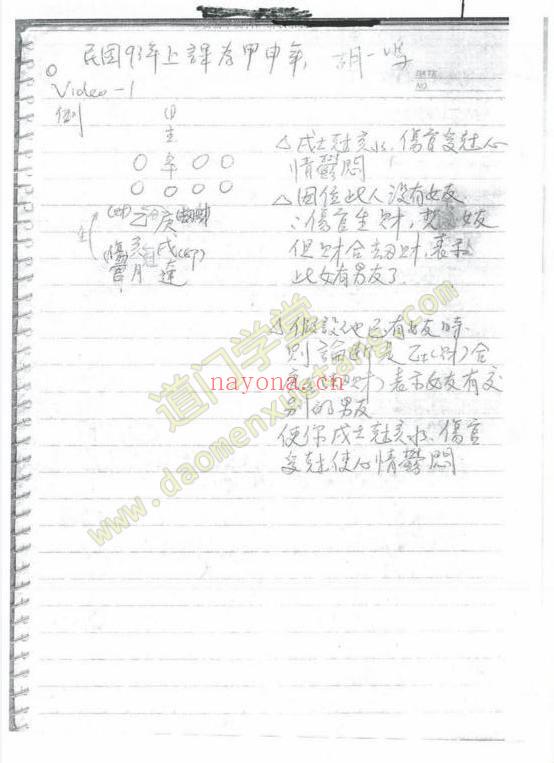 民国93年上課为甲申年，胡一鸣
DATE
NO
Video-1
例
日
主
○ 辛 ○ ○
○ ○ ○ ○
乙 庚
亥 戌
傷官 月 運
△戌土剋亥水，傷官受剋心
情鬱悶
△因位此人没有女友
∴傷官生財，契 女友
但財合劫財，表示
此女有男友了
△假設他已有女友時
則論断是乙(財)合
財)表示女友有交
别的男友
使你戌土剋亥水，傷官
受剋使心情鬱悶
道门学堂
nayona.cn
www.daomenxuetang.com